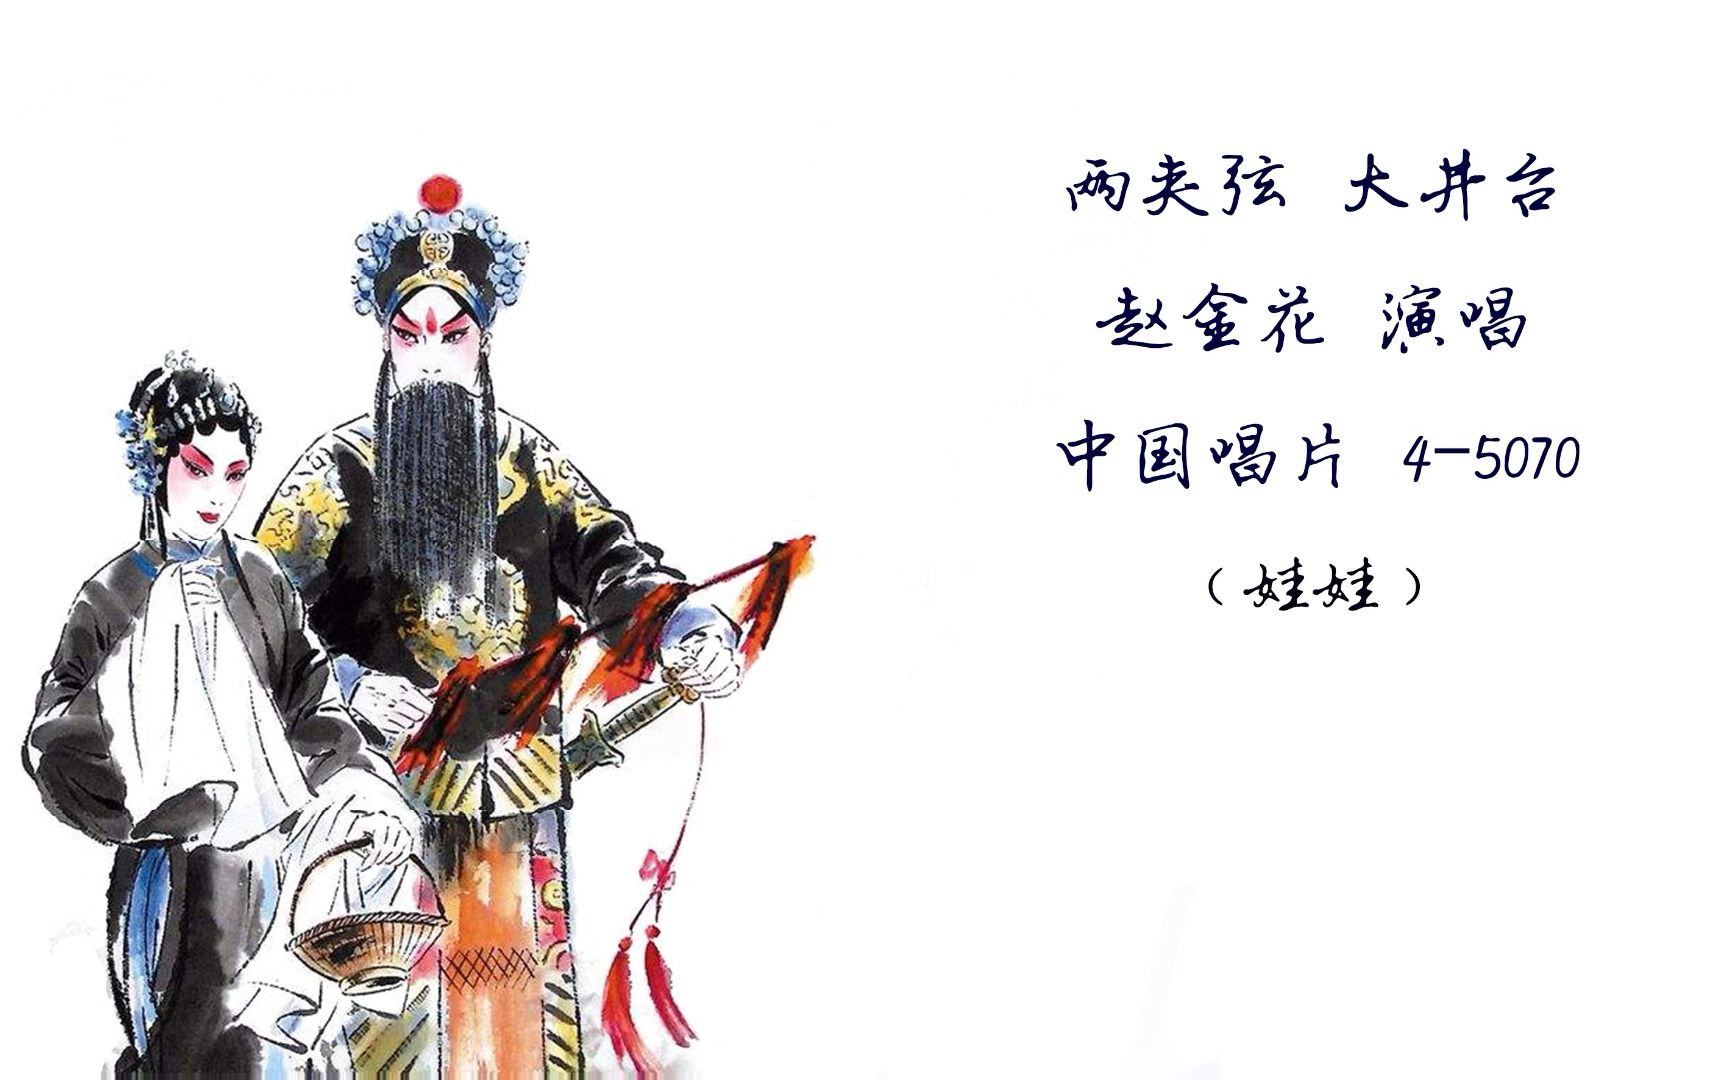 两夹弦 大井台
赵金花 演唱
中国唱片 4-5070
（娃娃）